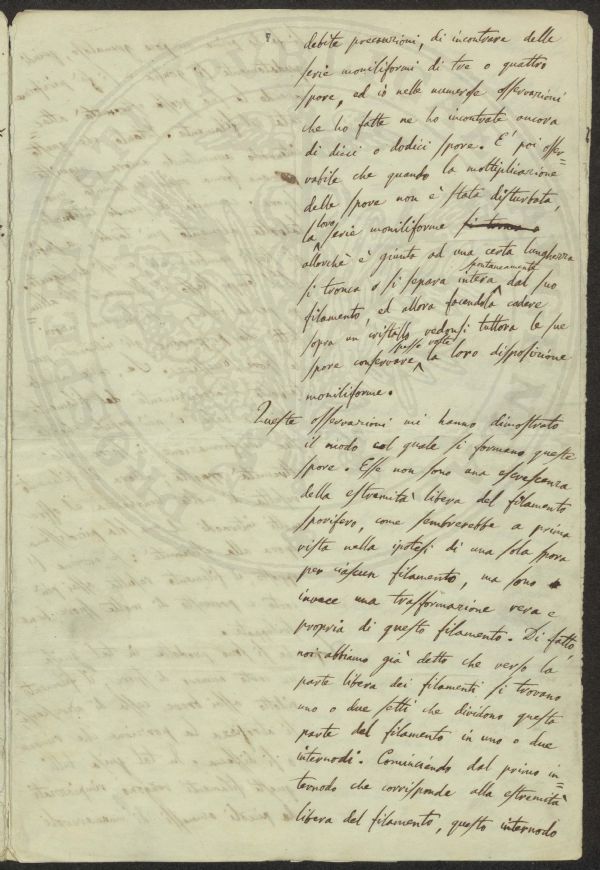 debite precauzioni, di incontrare delle
serie moniliformi di tre o quattro
spore, ed io nelle numerose osservazioni
che ho fatte ne ho incontrate ancora
di dieci o dodici spore. E' poi osser=
vabile che quando la moltiplicazione
delle spore non è stata disturbata,
la loro serie moniliforme si trova o
allorchè è giunta ad una certa lunghezza
si tronca o si separa intera spontaneamente dal suo
filamento, ed allora facendola cadere
sopra un cristallo vedonsi tuttora le sue
spore conservare spesse volte la loro disposizione
moniliforme.
Queste osservazioni mi hanno dimostrato
il modo col quale si formano queste
spore. Esse non sono una escrescenza
della estremità libera del filamento
sporifero, come sembrerebbe a prima
vista nella ipotesi di una sola spora
per ciascun filamento, ma sono
invece una trasformazione vera e
propria di questo filamento. Di fatto,
noi abbiamo già detto che verso la
parte libera dei filamenti si trovano
uno o due setti che dividono questa
parte del filamento in uno o due
internodi. Cominciando dal primo in=
ternodo che corrisponde alla estremità
libera del filamento, questo internodo